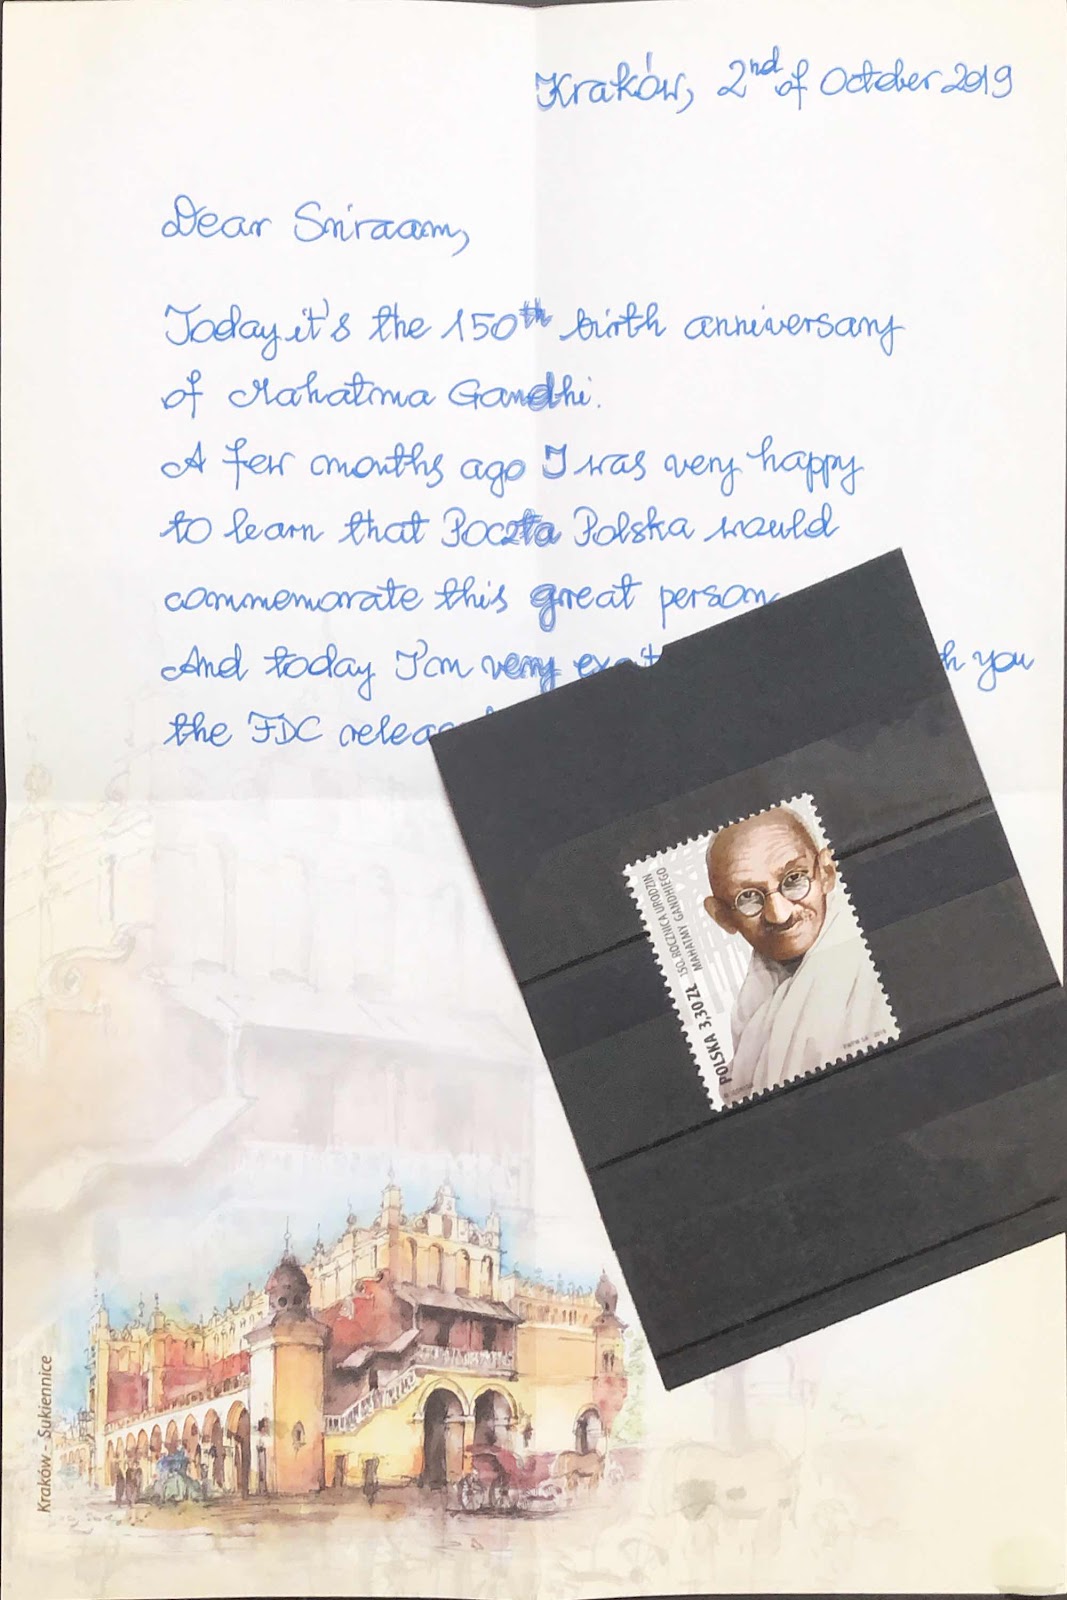 Kraków, 2nd of October 2019
Dear Sriraam,
Today it's the 150th birth anniversary
of Mahatma Gandhi.
A few months ago I was very happy
to learn that Poczta Polska would
commemorate this great person
And today I'm very you
the FDC
150. ROCZNICA URODZIN
MAHATMY GANDHIEGO
POLSKA 3,30 ZŁ
Kraków - Sukiennice